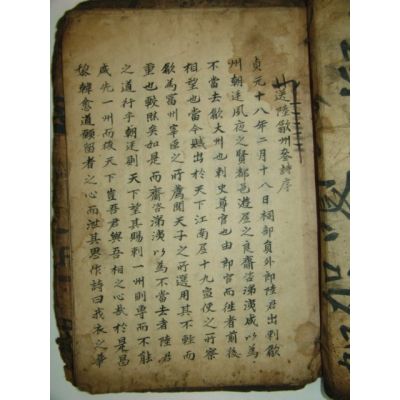 送陸歙州參詩序
貞元十八年二月十八日祠部員外郎陸君出刺歙
州朝廷夙夜之賢都邑遊居之良齎咨涕洟咸以為
不當去歙大州也刺史尊官也由郎官而往者前後
相望也當今賦出於天下江南居十九宣使之所察
歙為富州宰臣之所薦聞天子之所選用其不輕而
重也較然矣如是而齎咨涕洟以為不當去者陸君
之道行乎朝廷則天下望其賜刺一州則專而不能
咸先一州而後天下豈吾君與吾相之心哉於是昌
黎韓愈道願留者之心而泄其思作詩曰我衣之華